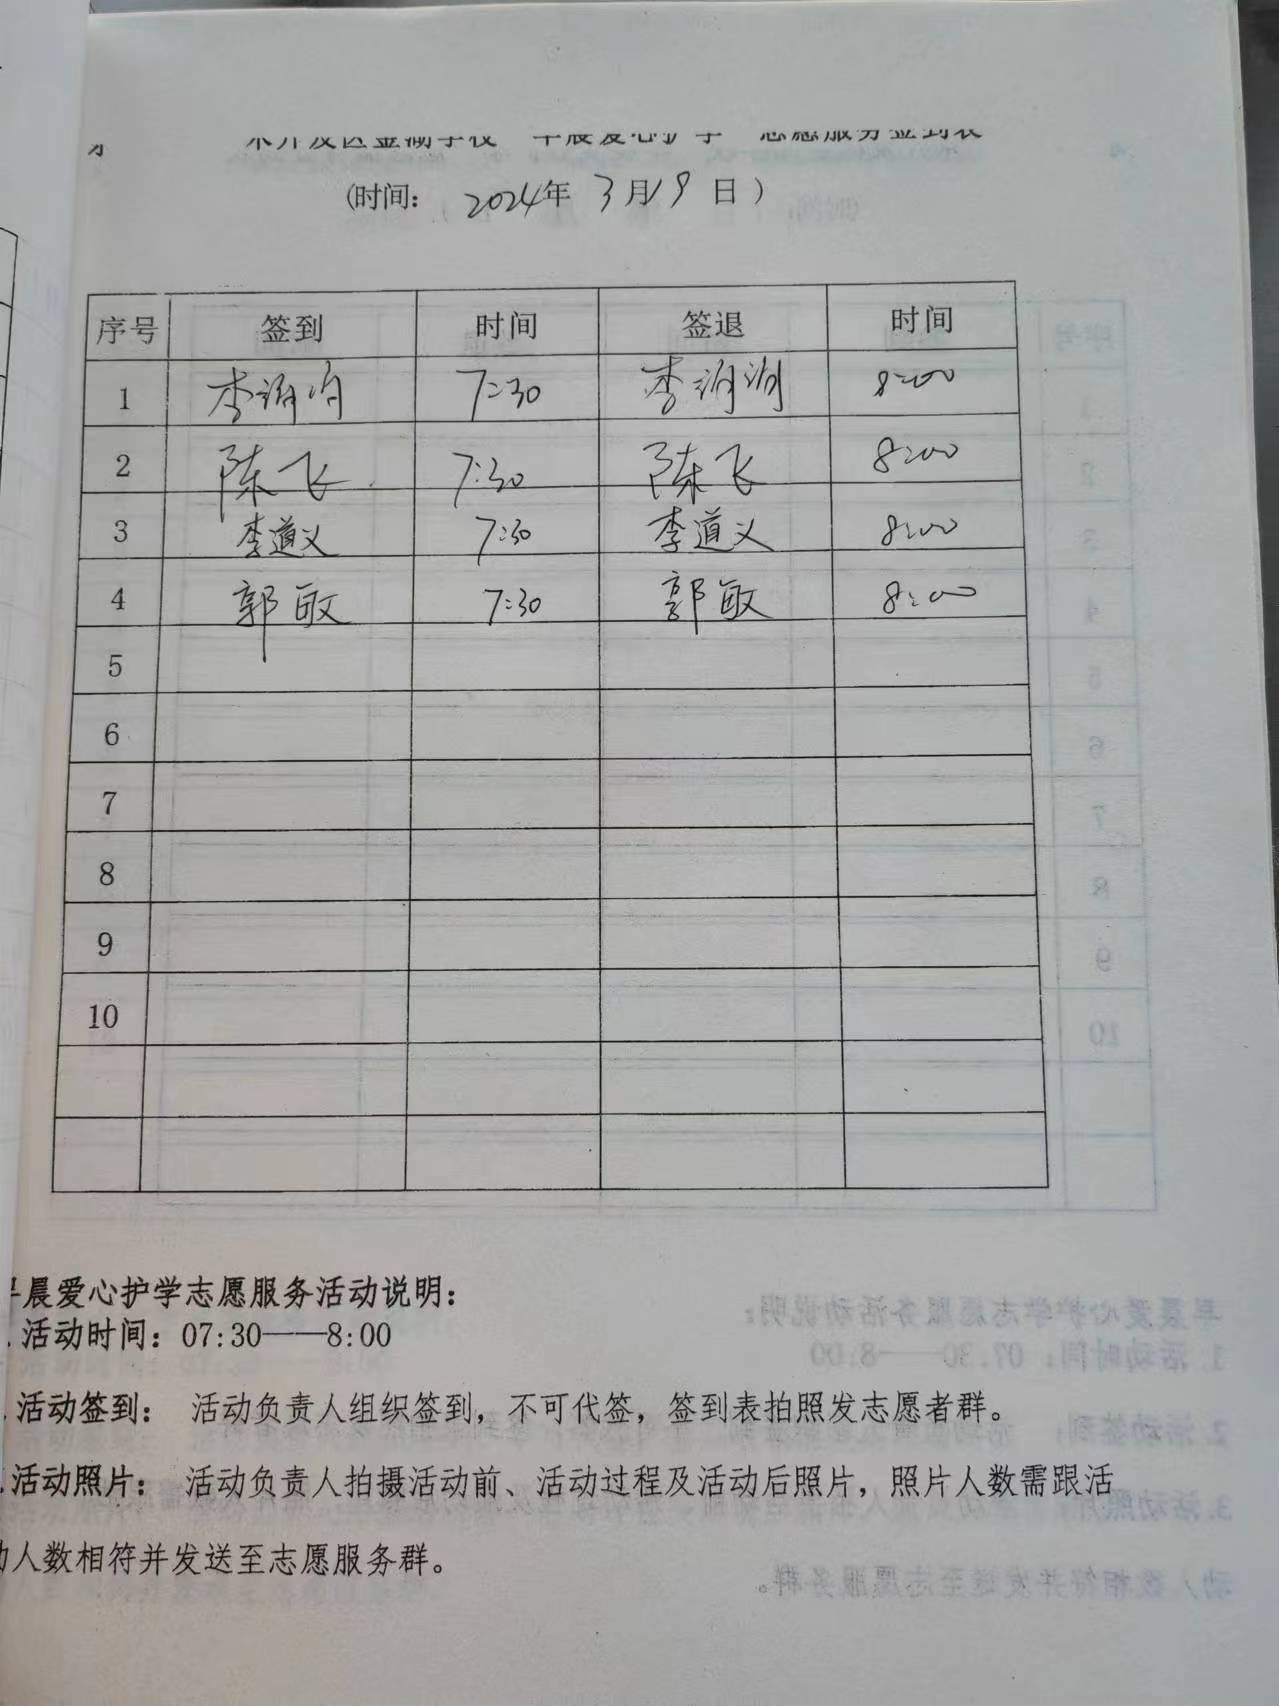 开发区金湖学校 早晨爱心护学 志愿服务签到表
(时间: 2024年 3月19日)
序号 签到 时间 签退 时间
1 7:30 8:00
2 陈飞 7:30 陈飞 8:00
3 李道义 7:30 李道义 8:00
4 郭敏 7:30 郭敏 8:00
5
6
7
8
9
10
早晨爱心护学志愿服务活动说明:
.活动时间: 07:30——8:00
.活动签到: 活动负责人组织签到,不可代签,签到表拍照发志愿者群。
.活动照片: 活动负责人拍摄活动前、活动过程及活动后照片,照片人数需跟活
动人数相符并发送至志愿服务群。